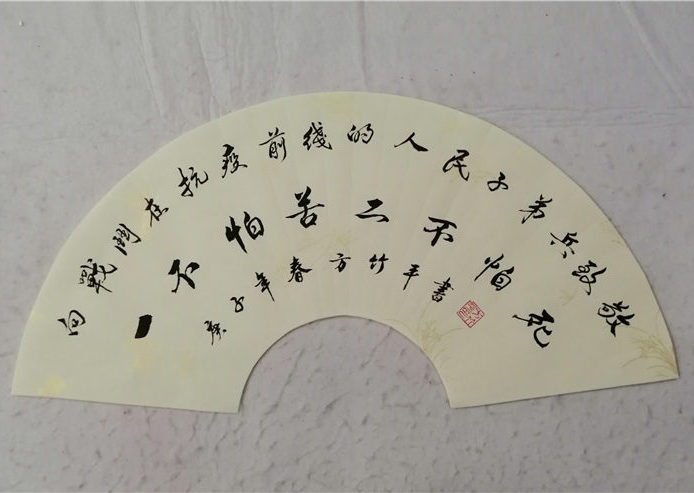 向戰鬥在抗疫前綫的人民子弟兵致敬
一不怕苦二不怕死
庚子年春方竹平書